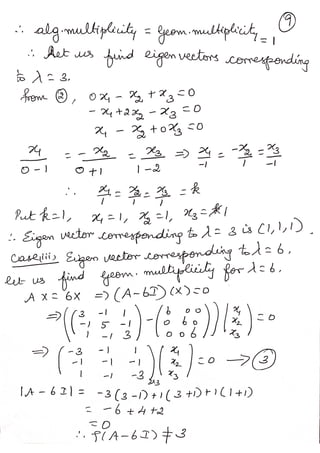 9
∴ alg.multiplicity = Geom.multiplicity = 1
∴ Let us find eigen vectors corresponding
to λ = 3.
from ②, 0x₁ - x₂ + x₃ = 0
-x₁ + 2x₂ - x₃ = 0
x₁ - x₂ + 0x₃ = 0
x₁/(0-1) = -x₂/(0+1) = x₃/(1-2) ⇒ x₁/-1 = -x₂/1 = x₃/-1
∴ x₁/1 = x₂/1 = x₃/1 = k
Put k=1, x₁=1, x₂=1, x₃=1
∴ Eigen vector corresponding to λ = 3 is (1,1,1).
Case(iii) Eigen vector corresponding to λ = 6.
let us find Geom. multiplicity for λ = 6.
AX = 6X ⇒ (A-6I)(X) = 0
⇒ ((3 -1 1
-1 5 -1
1 -1 3) - (6 0 0
0 6 0
0 0 6)) (x₁
x₂
x₃) = 0
⇒ (-3 -1 1
-1 -1 -1
1 -1 -3) (x₁
x₂
x₃) = 0 → ③
|A-6I| = -3(3-1)+1(3+1)+1(1+1)
= -6+4+2
= 0
∴ ρ(A-6I) ≠ 3